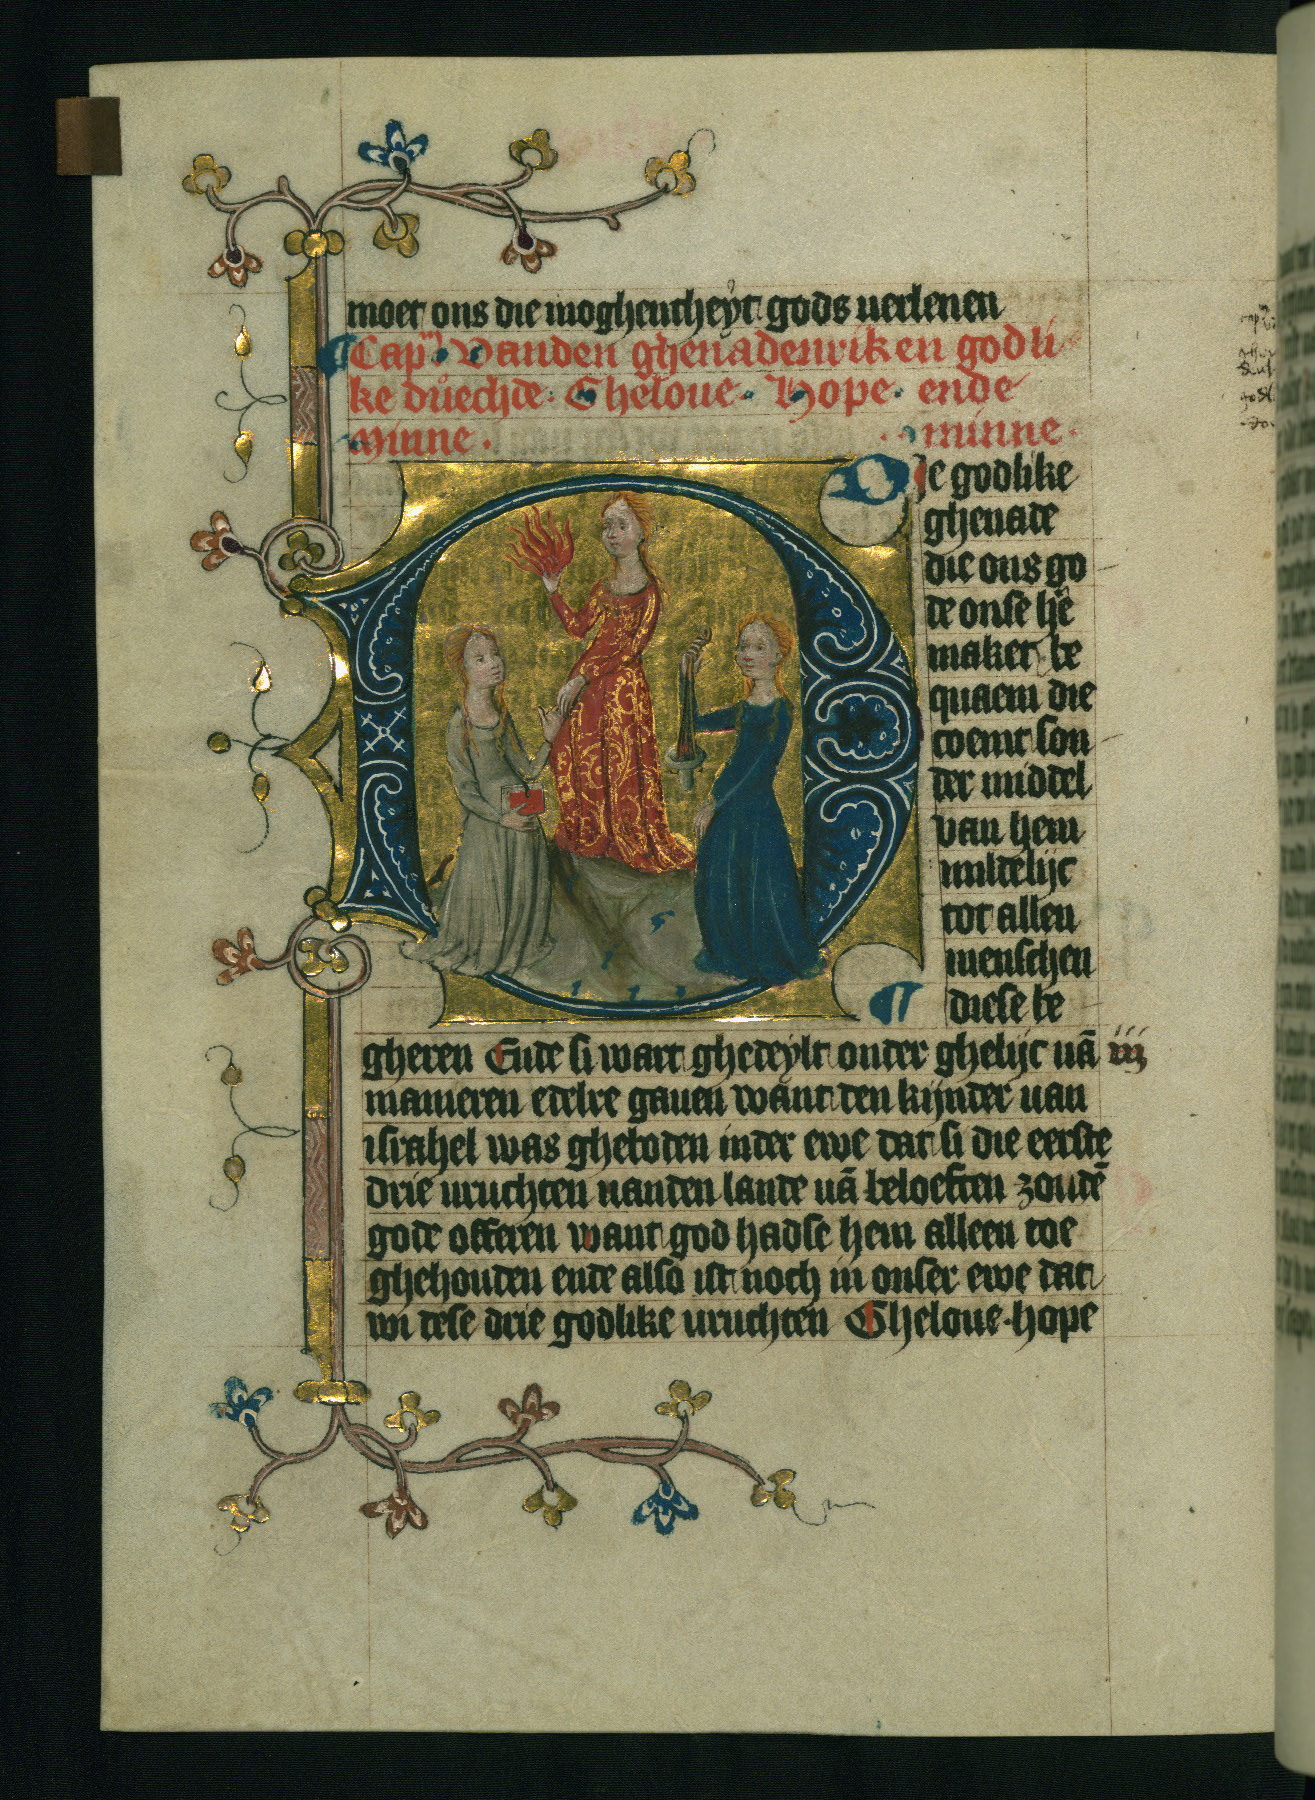 moet ons die moghentheyt gods uerlenen
¶ Capm. Vanden ghenadenriken godli
ke duechde. Gheloue. Hope. ende
Minne. minne.
Die godlike
ghenade
die ons go
de onse hē
maket be
quaem die
coemt son
der middel
van hem
mildelijc
tot allen
menschen
¶ diese be
gheren Ende si wart ghedeylt onder ghelijc uā iij
manieren edelre gauen want den kijnder uan
israhel was gheboden inder ewe dat si die eerste
drie uruchten uanden lande uā beloeften zoudē
gode offeren want god hadse hem alleen toe
ghehouden ende also ist noch in onser ewe dat
wi dese drie godlike uruchten Gheloue. hope